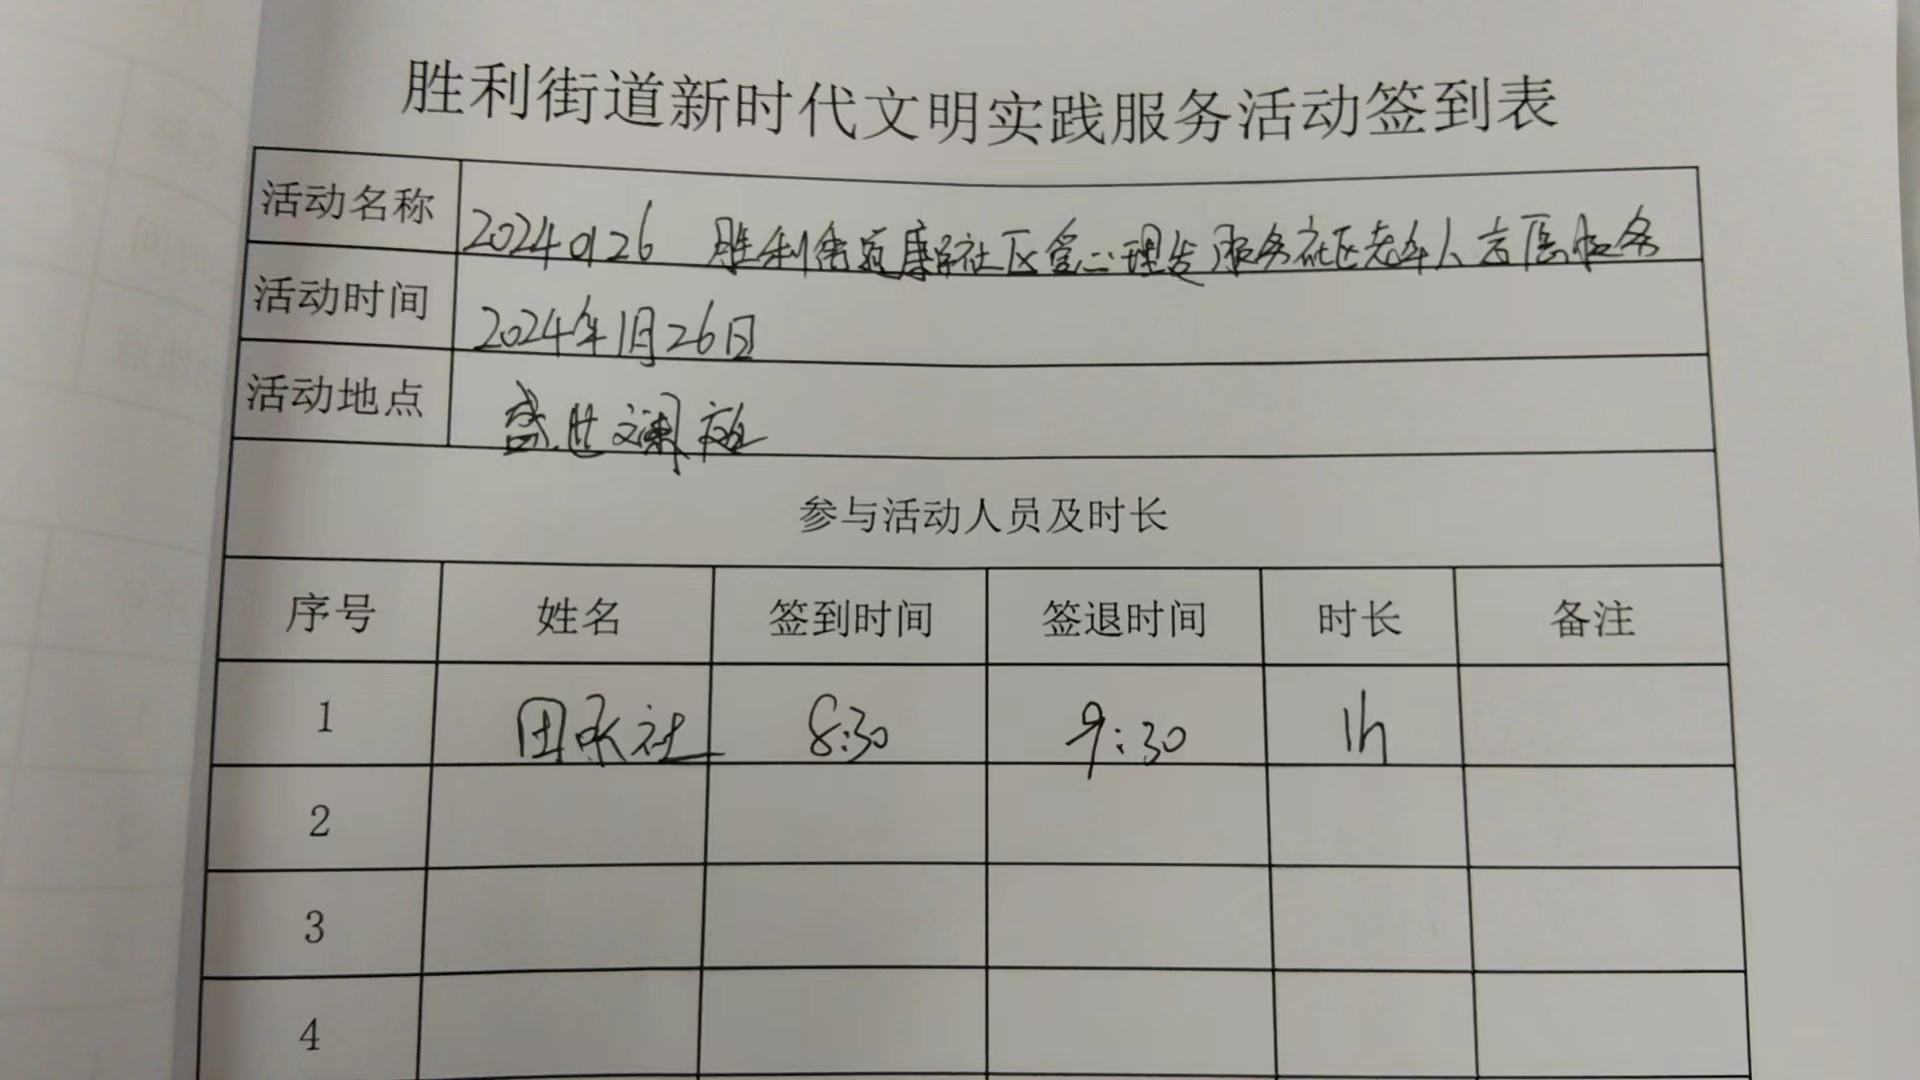 胜利街道新时代文明实践服务活动签到表
活动名称 20240126 胜利街道康宁社区爱心理发服务社区老年人志愿服务
活动时间 2024年1月26日
活动地点 盛世文澜
参与活动人员及时长
序号 姓名 签到时间 签退时间 时长 备注
1 8:30 9:30 1h
2
3
4